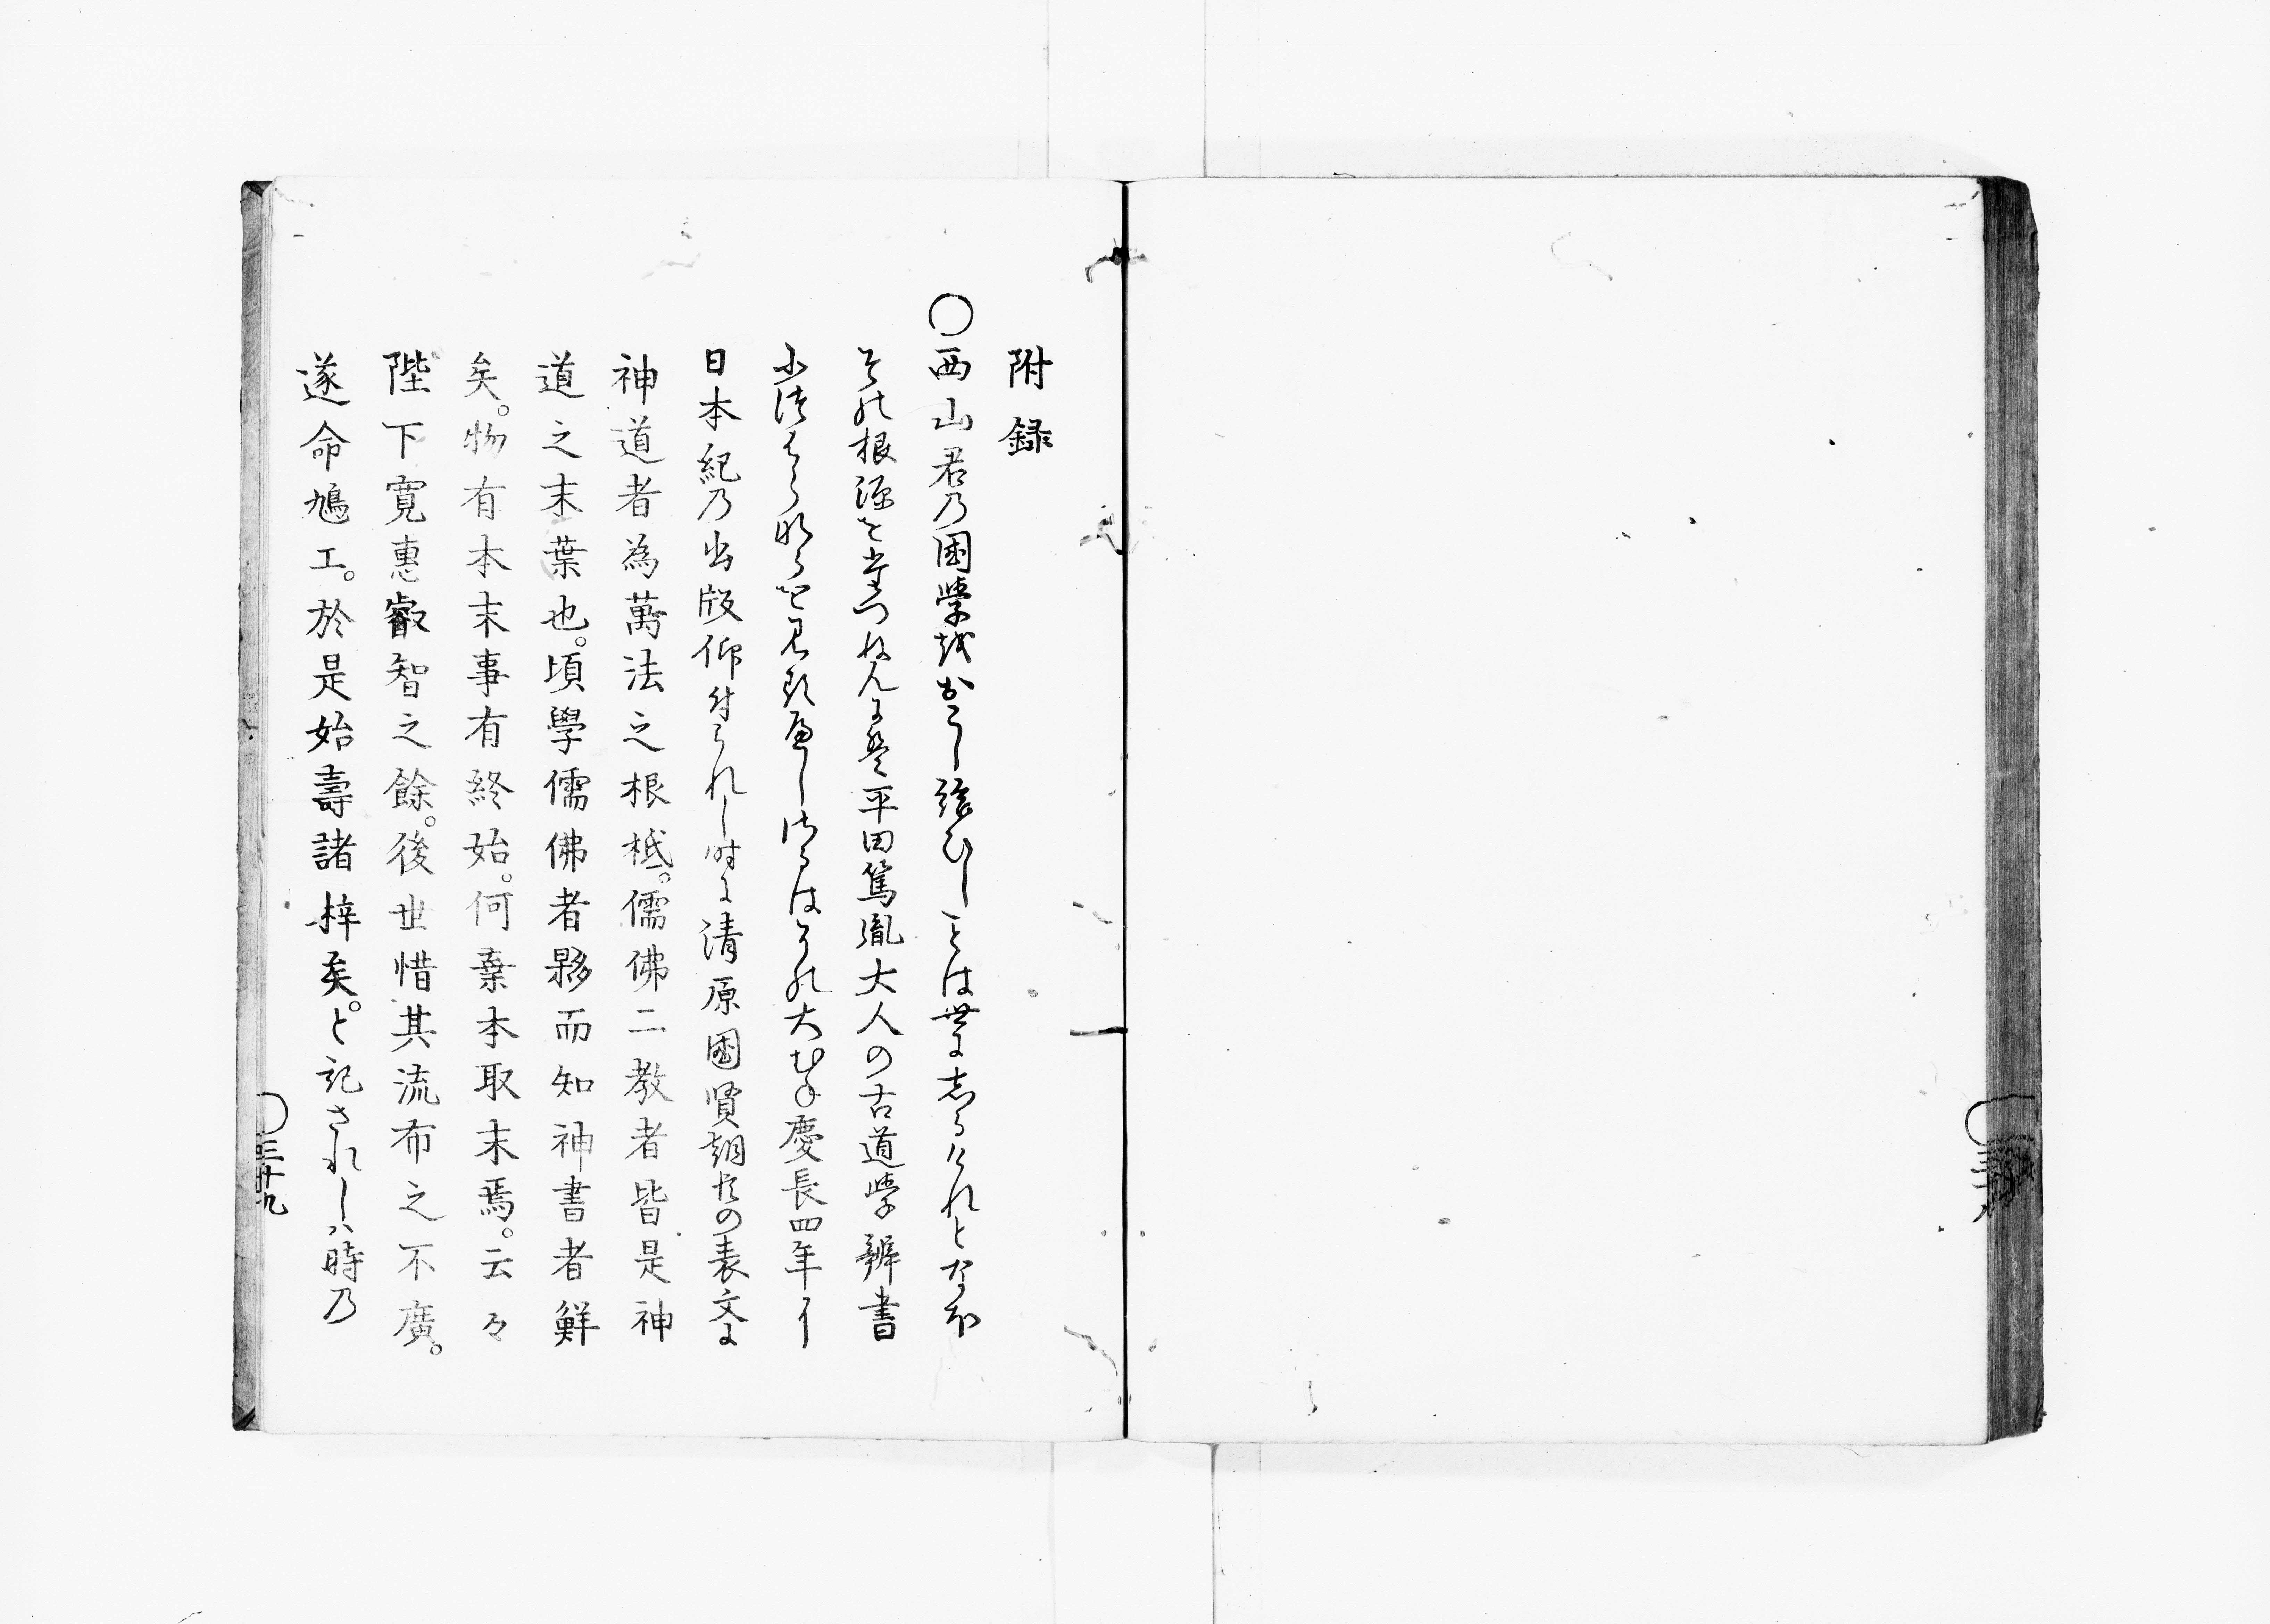 附録
〇西山君乃國學越おこし給ひしことは世に志るけれとなほ
その根源をたつねんには平田篤胤大人の古道學辨書
に
日本紀乃出版仰付られし時に清原國賢朝臣の表文に
神道者為萬法之根柢。儒佛二教者皆是神
道之末葉也。頃學儒佛者夥而知神書者鮮
矣。物有本末事有終始。何棄本取末焉。云々
陛下寛惠叡智之餘。後世惜其流布之不廣。
遂命鳩工。於是始壽諸梓矣。と記されしハ時乃
〇三十九